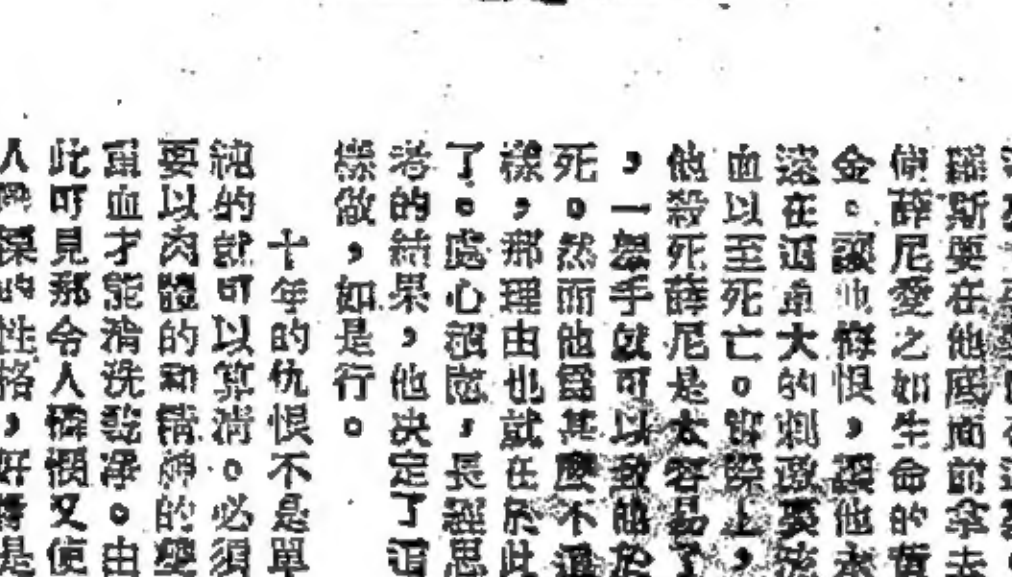 羅斯要在他底面前拿去
偵薛尼愛之如生命的黃
金。讓他悔恨,讓他永
遠在這重大的刺激要流
血以至死亡。實際上,
他殺死薛尼是太容易了
,一舉手就可以致他於
死。然而他為甚麼不這
樣,那理由也就在於此
了。處心積慮,長經思
考的結果,他決定了這
樣做,如是行。
十年的仇恨不是單
純的就可以算淸。必須
要以肉體的和精神的雙
重血才能淸洗乾凈。由
此可見那令人憐憫又使
人 的性格,好 是